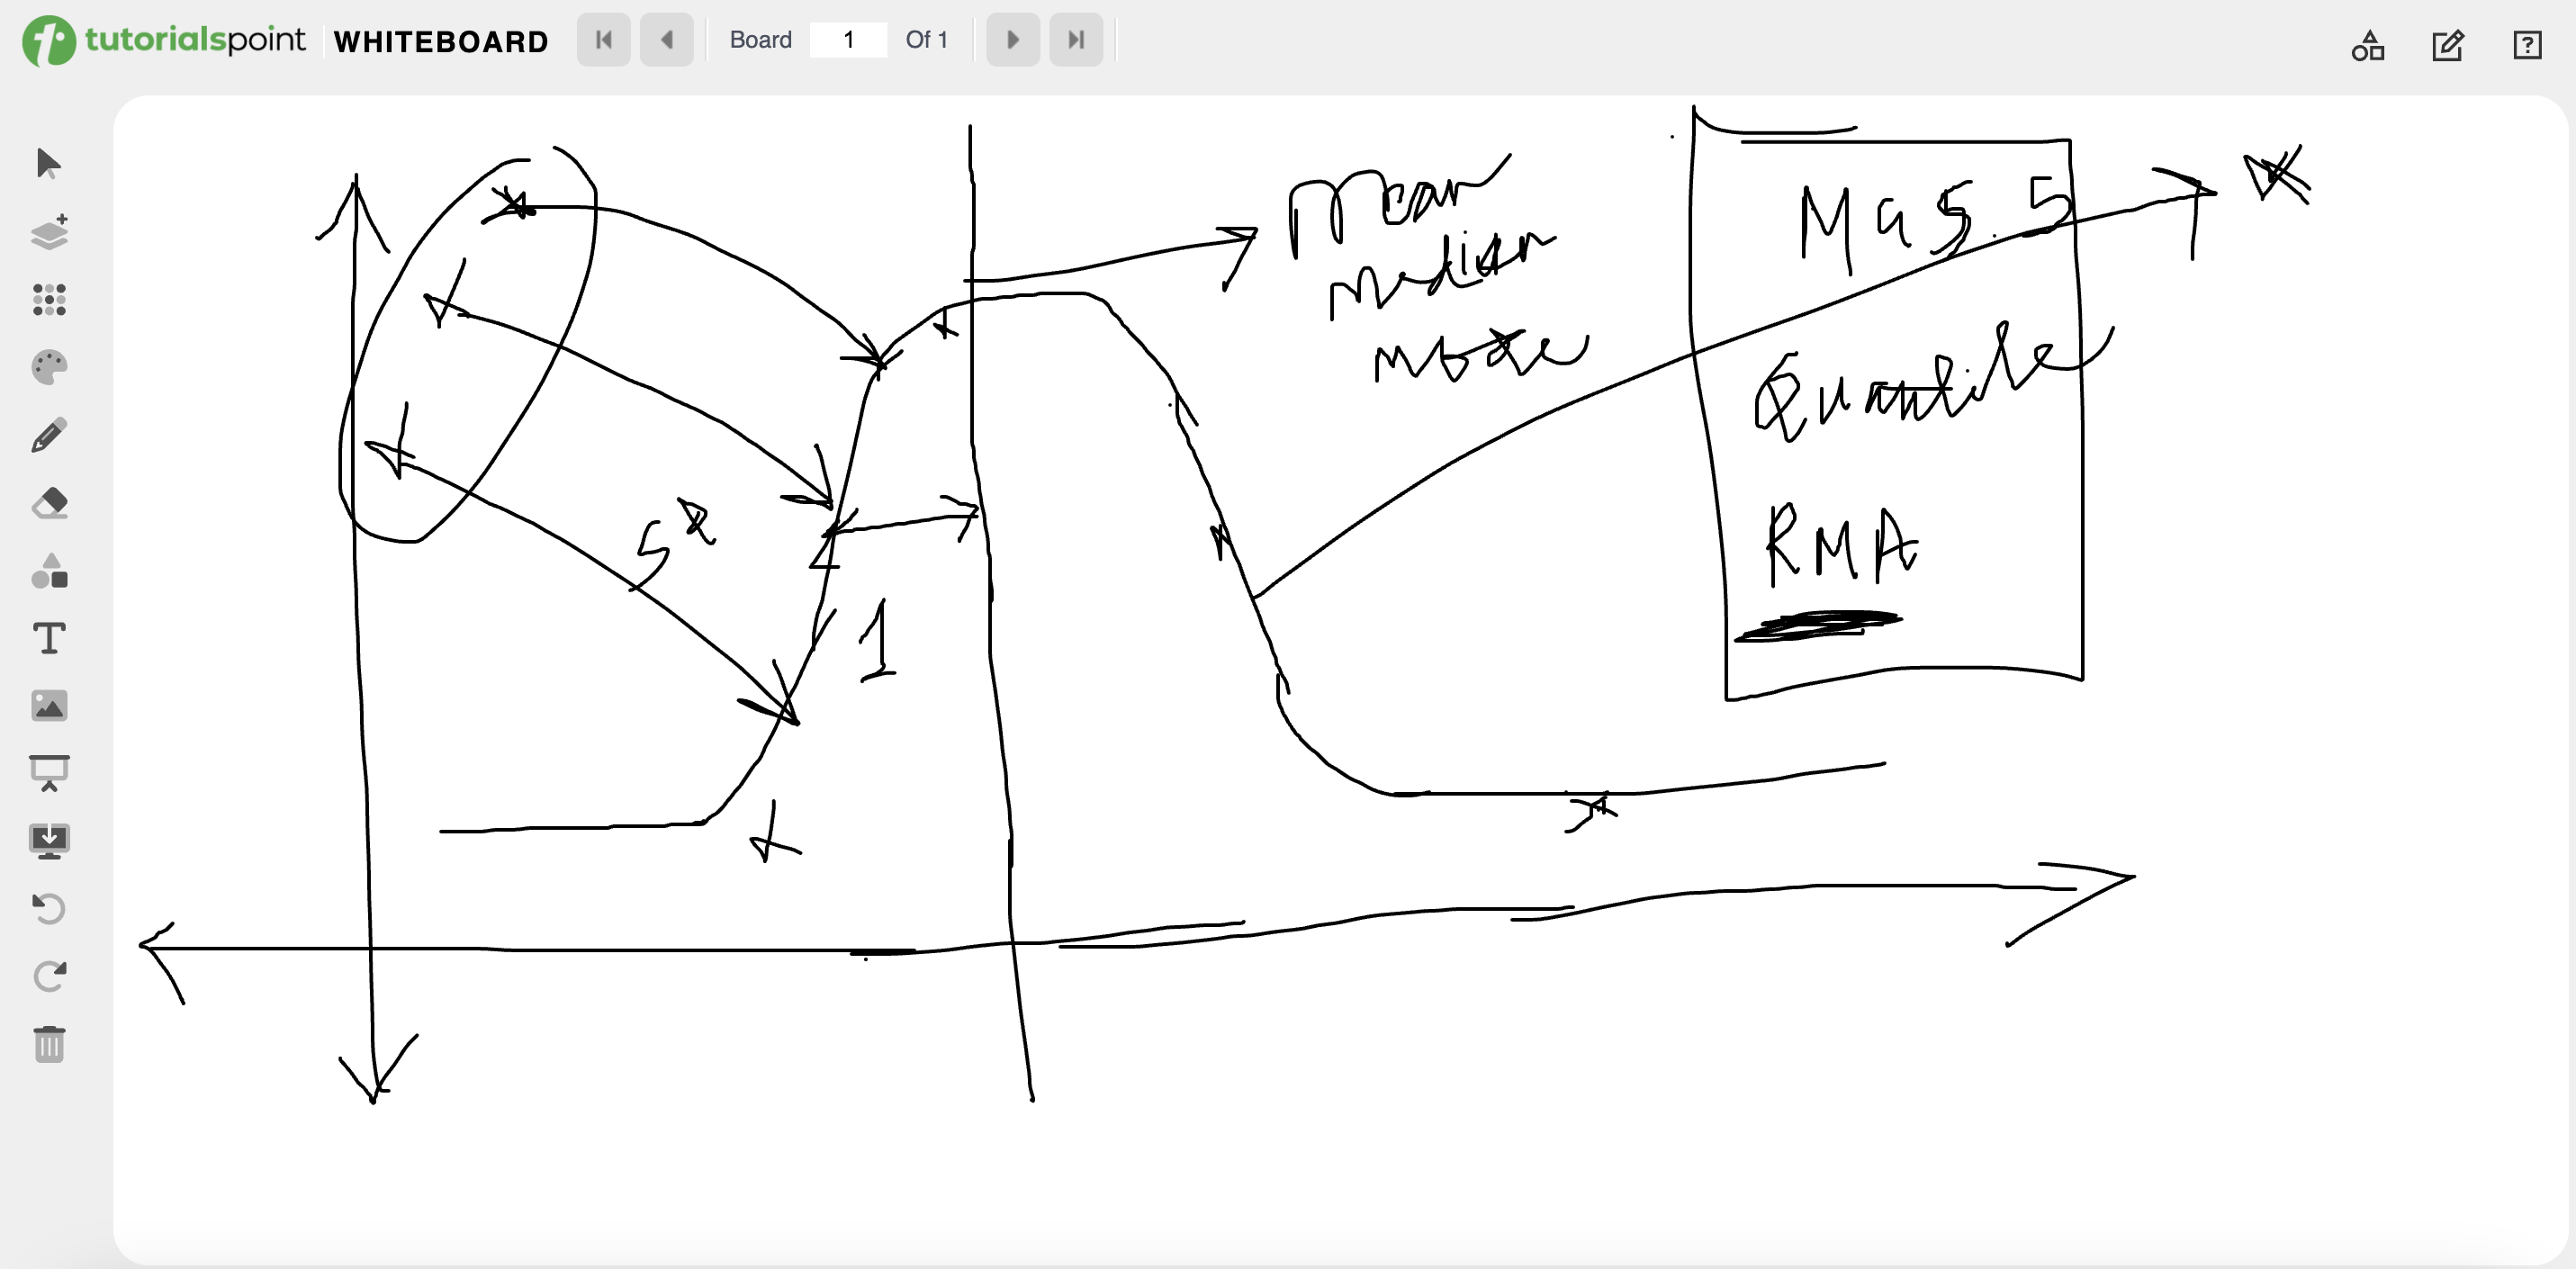 tutorialspoint WHITEBOARD Board 1 Of 1
Mean
Median
Mode
Mas 5
Quantile
RMA
5
1